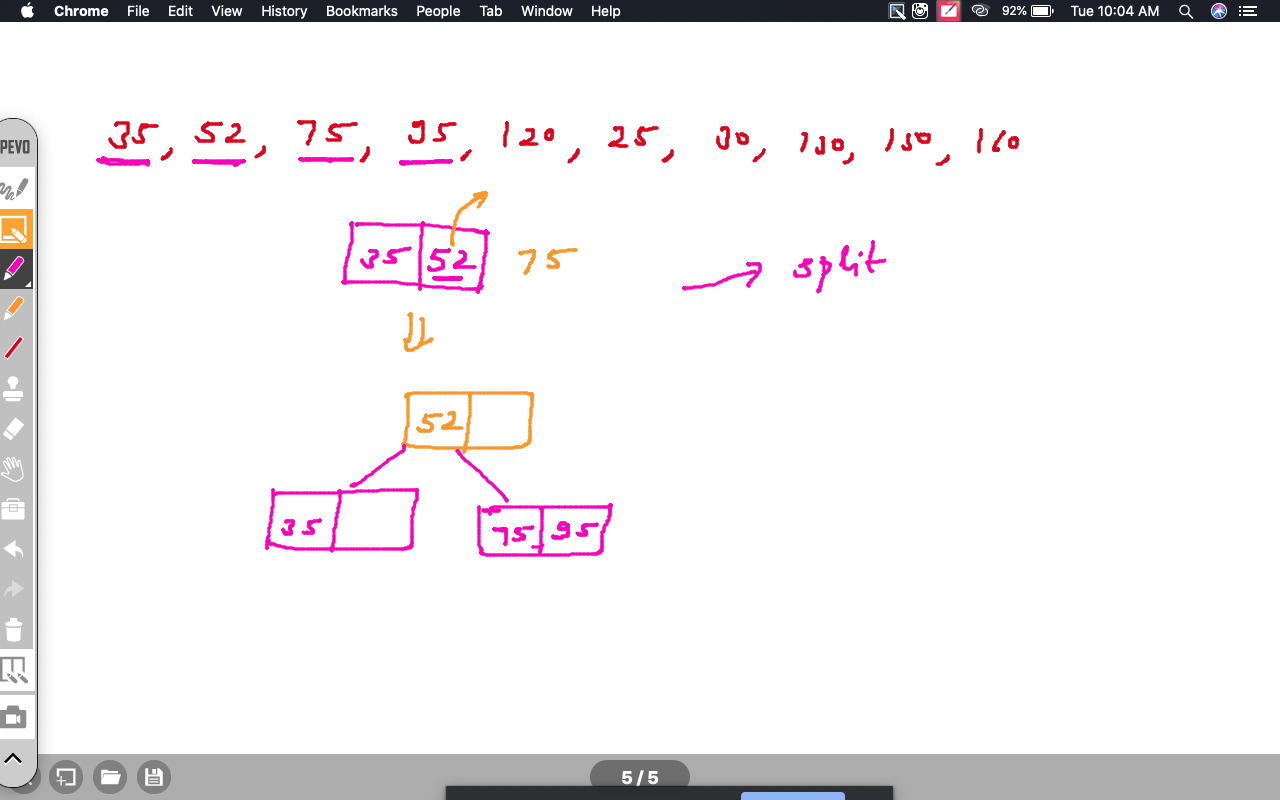 Chrome File Edit View History Bookmarks People Tab Window Help 92% Tue 10:04 AM
PEVO
35, 52, 75, 95, 120, 25, 30, 130, 150, 160
35 52 75 split
52
35 75 95
5 / 5